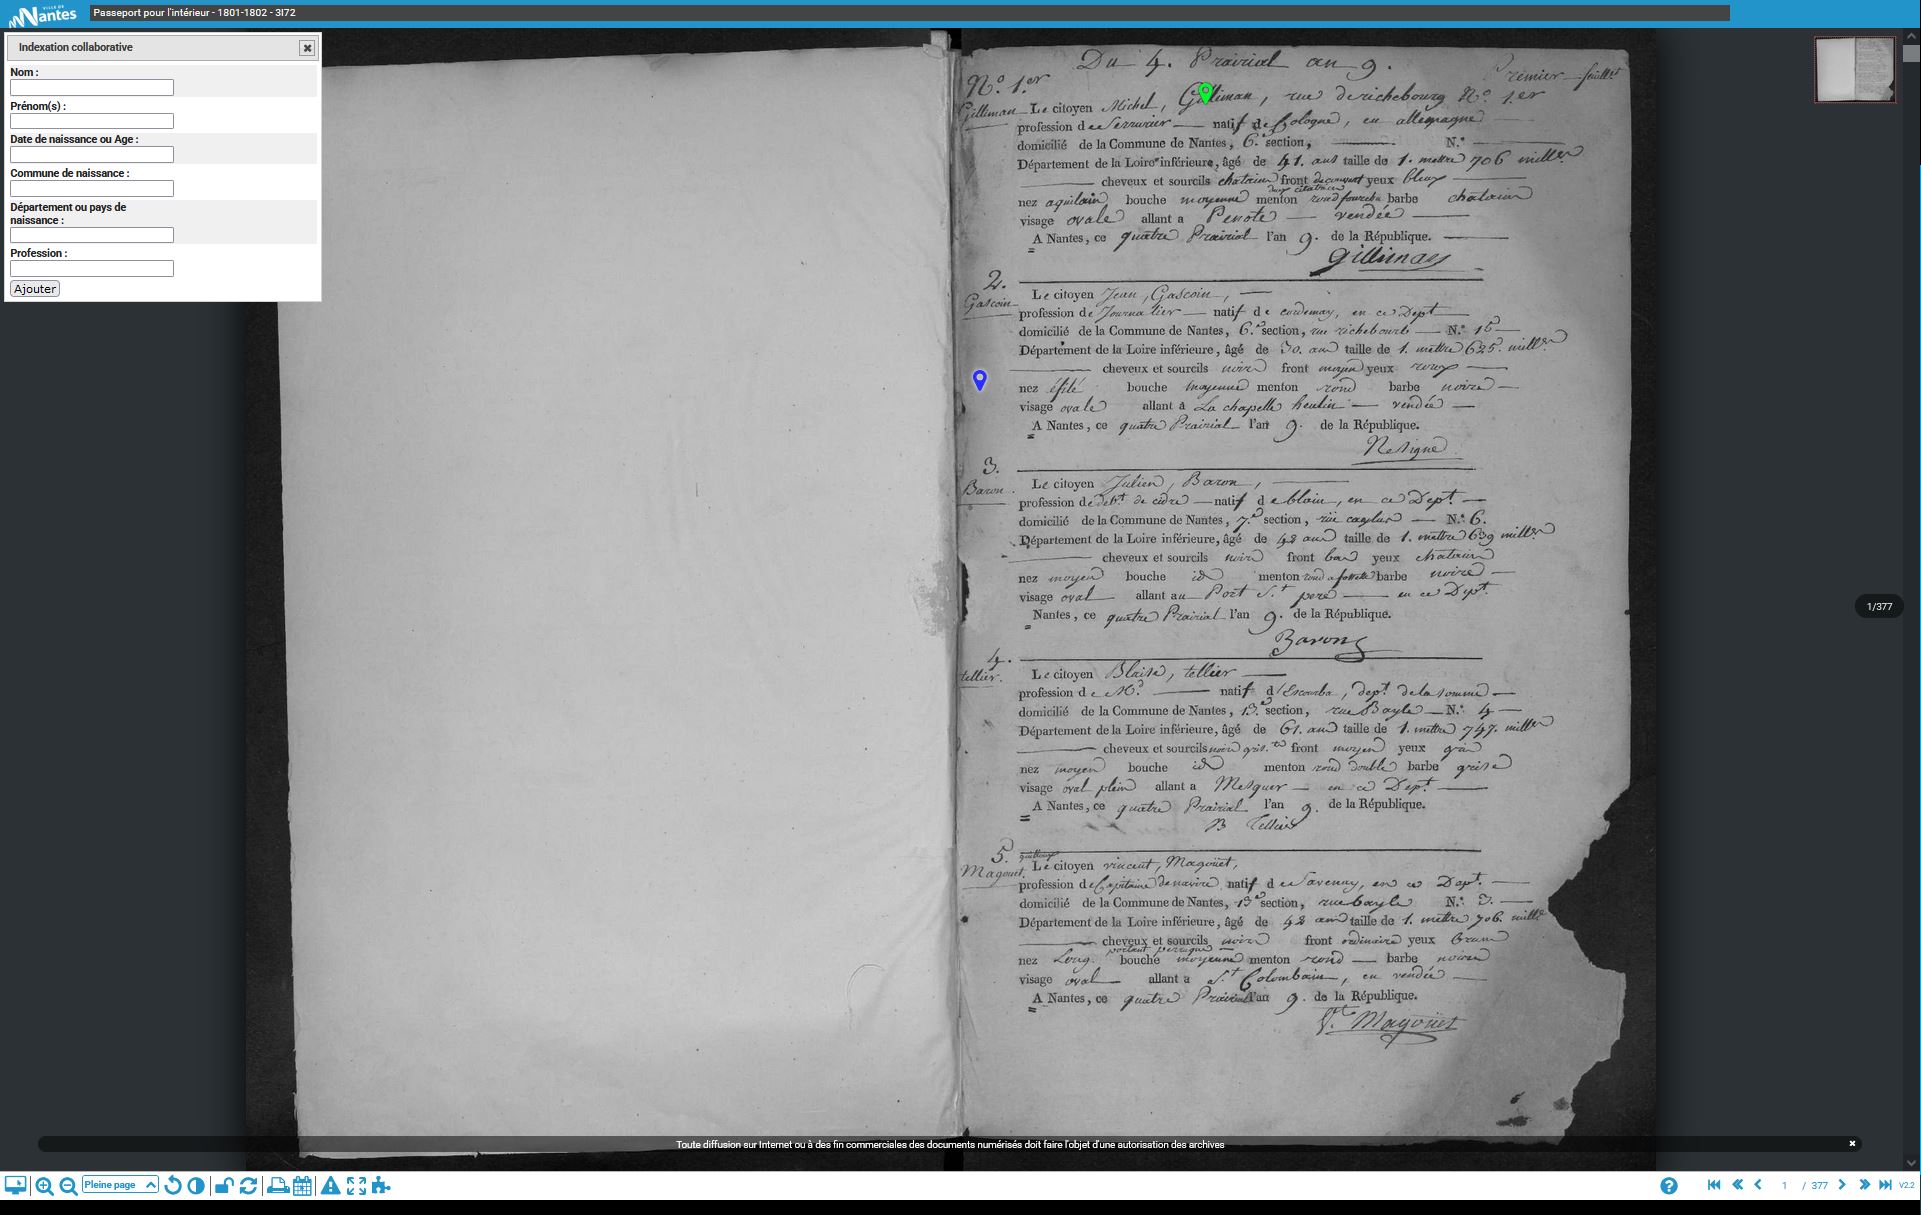 VILLE DE
Nantes
Passeport pour l'intérieur - 1801-1802 - 3I72
Indexation collaborative
Nom :
Prénom(s) :
Date de naissance ou Age :
Commune de naissance :
Département ou pays de
naissance :
Profession :
Ajouter
Du 4. Prairial an 9.
Premier feuillet
N.o 1.er
Gilliman
Le citoyen Michel, Gilliman, rue de richebourg N.o 1.er
profession de Serrurier natif de Cologne, en allemagne
domicilié de la Commune de Nantes, 6.e section, N.o
Département de la Loire inférieure, âgé de 41. ans taille de 1. mettre 706 mill.
cheveux et sourcils chatain front decouvert yeux bleux
nez aquilain bouche moyenne menton rond fourchu barbe chatain
visage ovale allant a vendée
A Nantes, ce quatre Prairial l'an 9. de la République.
Gilliman
2.
Gascoin
Le citoyen Jean, Gascoin,
profession de Journalier natif de cordemay, en ce Dept
domicilié de la Commune de Nantes, 6.e section, rue richebourg N.o 15
Département de la Loire inférieure, âgé de 30. ans taille de 1. mettre 625. mill.
cheveux et sourcils noirs front moyen yeux roux
nez éfilé bouche moyenne menton rond barbe noire
visage ovale allant à La chapelle heulin vendée
A Nantes, ce quatre Prairial l'an 9. de la République.
Ne signe
3.
Baron
Le citoyen Julien, Baron,
profession de debt de cidre natif de blain, en ce Dept.
domicilié de la Commune de Nantes, 7.e section, rue N.o 6.
Département de la Loire inférieure, âgé de 42 ans taille de 1. mettre 639 mill.
cheveux et sourcils noirs front bas yeux chatain
nez moyen bouche id menton rond a fossette barbe noire
visage oval allant au Port St pere en ce Dept.
Nantes, ce quatre Prairial l'an 9. de la République.
Baron
4.
tellier.
Le citoyen Blaise, tellier
profession de Md natif d' dept. de la somme
domicilié de la Commune de Nantes, 13.e section, rue Bayle N.o 4
Département de la Loire inférieure, âgé de 61. ans taille de 1. mettre 747. mill.
cheveux et sourcils noir front moyen yeux gris
nez moyen bouche id menton rond double barbe grise
visage oval plein allant a Mesquer en ce Dept.
A Nantes, ce quatre Prairial l'an 9. de la République.
B Tellier
5.
Magouet.
Le citoyen vincent, Magoüet,
profession de Capitaine de navire natif de Savenay, en ce Dept.
domicilié de la Commune de Nantes, 13e section, rue bayle N.o 3.
Département de la Loire inférieure, âgé de 42 ans taille de 1. mettre 706. mill.
cheveux et sourcils noirs front ordinaire yeux brun
portant perruque
nez Long. bouche moyenne menton rond barbe noire
visage oval allant a St Colombain, en vendée
A Nantes, ce quatre Prairial l'an 9. de la République.
Vt. Magoüet
1/377
Toute diffusion sur Internet ou à des fin commerciales des documents numérisés doit faire l'objet d'une autorisation des archives
Pleine page
1 / 377
V2.2